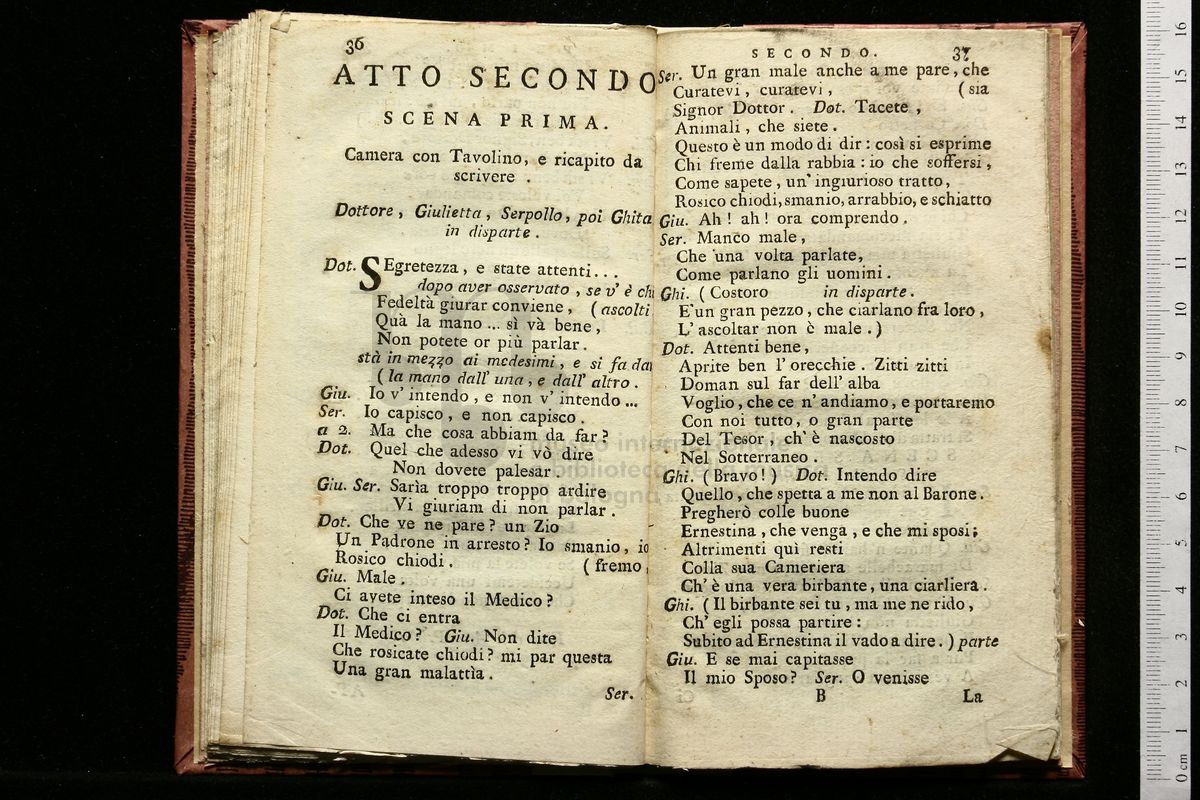 36
ATTO SECONDO
SCENA PRIMA.
Camera con Tavolino, e ricapito da
scrivere .
Dottore, Giulietta, Serpollo, poi Ghita
in disparte .
Dot. SEgretezza, e state attenti...
dopo aver osservato, se v' è chi
Fedeltà giurar conviene, ( ascolti
Quà la mano ... sì và bene,
Non potete or più parlar.
stà in mezzo ai medesimi, e si fa dar
( la mano dall' una, e dall' altro.
Giu. Io v' intendo, e non v' intendo ...
Ser. Io capisco, e non capisco.
a 2. Ma che cosa abbiam da far?
Dot. Quel che adesso vi vò dire
Non dovete palesar.
Giu. Ser. Sarìa troppo troppo ardire
Vi giuriam di non parlar.
Dot. Che ve ne pare? un Zio
Un Padrone in arresto? Io smanio, io
Rosico chiodi. ( fremo,
Giu. Male.
Ci avete inteso il Medico?
Dot. Che ci entra
Il Medico? Giu. Non dite
Che rosicate chiodi? mi par questa
Una gran malattìa.
Ser.
SECONDO. 37
Ser. Un gran male anche a me pare, che
Curatevi, curatevi, ( sia
Signor Dottor. Dot. Tacete,
Animali, che siete.
Questo è un modo di dir: così si esprime
Chi freme dalla rabbia: io che soffersi,
Come sapete, un' ingiurioso tratto,
Rosico chiodi, smanio, arrabbio, e schiatto
Giu. Ah! ah! ora comprendo.
Ser. Manco male,
Che una volta parlate,
Come parlano gli uomini.
Ghi. ( Costoro in disparte.
E' un gran pezzo, che ciarlano fra loro,
L' ascoltar non è male.)
Dot. Attenti bene,
Aprite ben l' orecchie. Zitti zitti
Doman sul far dell' alba
Voglio, che ce n' andiamo, e portaremo
Con noi tutto, o gran parte
Del Tesor, ch' è nascosto
Nel Sotterraneo.
Ghi. ( Bravo! ) Dot. Intendo dire
Quello, che spetta a me non al Barone.
Pregherò colle buone
Ernestina, che venga, e che mi sposi;
Altrimenti quì resti
Colla sua Cameriera
Ch' è una vera birbante, una ciarliera.
Ghi. ( Il birbante sei tu, ma me ne rido,
Ch' egli possa partire:
Subito ad Ernestina il vado a dire.) parte
Giu. E se mai capitasse
Il mio Sposo? Ser. O venisse
B La
16
15
14
13
12
11
10
9
8
7
6
5
4
3
2
1
0 cm